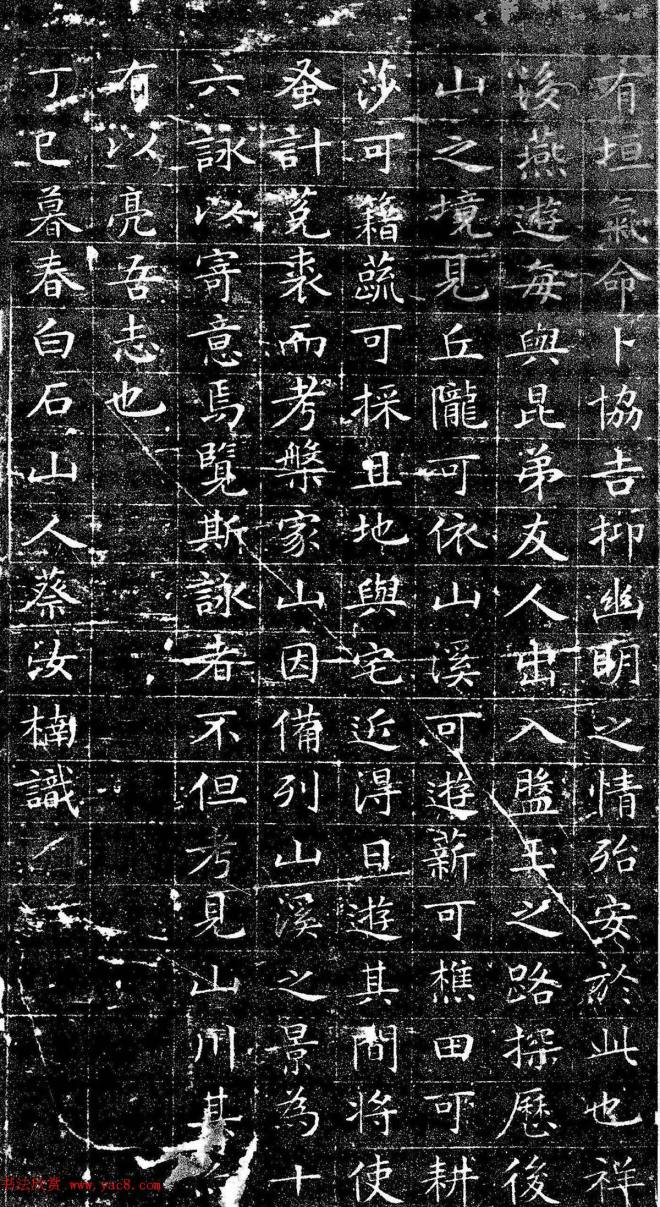 有垣氣命卜協吉抑幽明之情殆安於此也祥
後燕遊每與昆弟友人出入盤玉之路探歷後
山之境見丘隴可依山溪可遊薪可樵田可耕
莎可籍蔬可採且地與宅近得日遊其間將使
蚤計菟裘而考槃家山因備列山溪之景為十
六詠以寄意焉覽斯詠者不但考見山川其
有以亮吾志也
丁巳暮春白石山人蔡汝楠識
书法欣赏 www.yac8.com